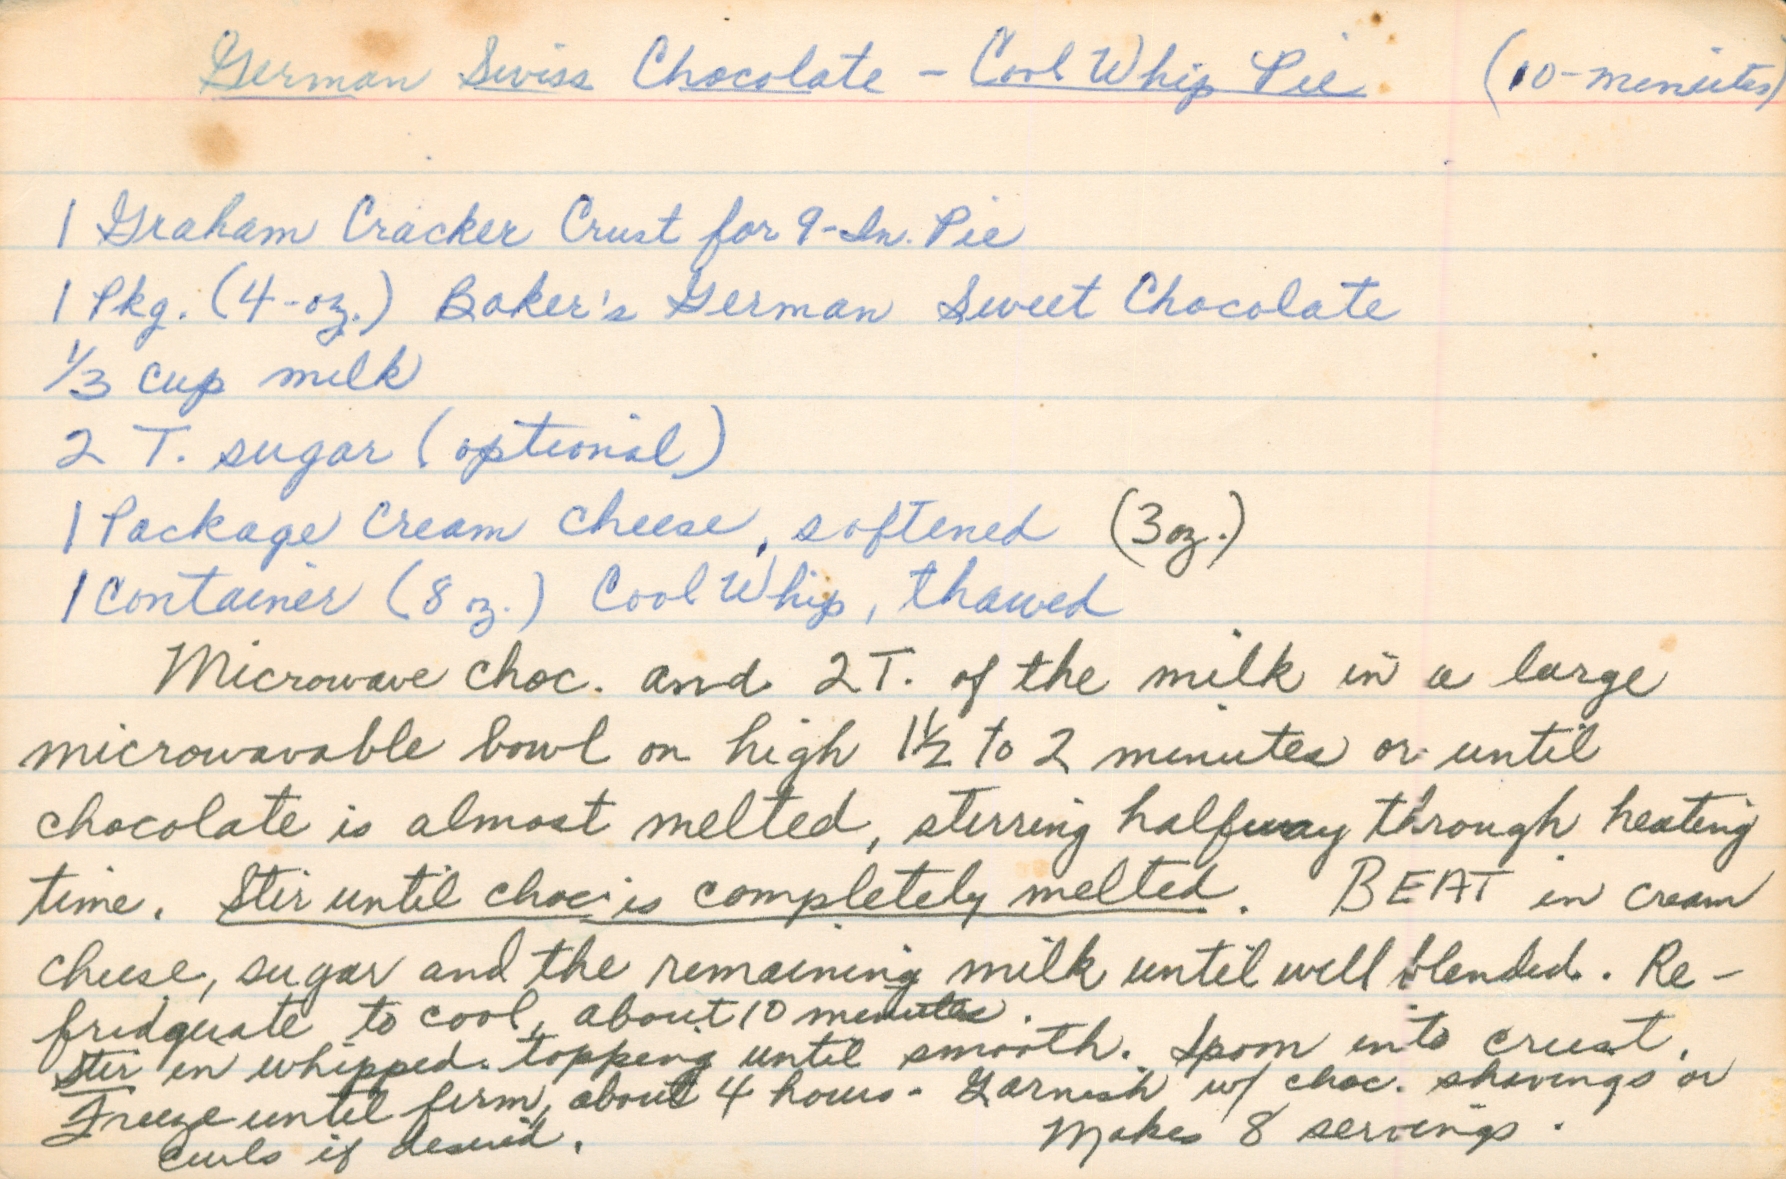 German Swiss Chocolate - Cool Whip Pie (10-minutes)
1 Graham Cracker Crust for 9-In. Pie
1 Pkg. (4-oz.) Baker's German Sweet Chocolate
1/3 cup milk
2 T. sugar (optional)
1 Package Cream Cheese, softened (3 oz.)
1 Container (8 oz.) Cool Whip, thawed
Microwave choc. and 2 T. of the milk in a large
microwavable bowl on high 1 1/2 to 2 minutes or until
chocolate is almost melted, stirring halfway through heating
time. Stir until choc. is completely melted. BEAT in cream
cheese, sugar and the remaining milk until well blended. Re-
fridguate to cool, about 10 minutes.
Stir in whipped topping until smooth. Spoon into crust.
Freeze until firm, about 4 hours - Garnish w/ choc. shavings or
curls if desired. Makes 8 servings.